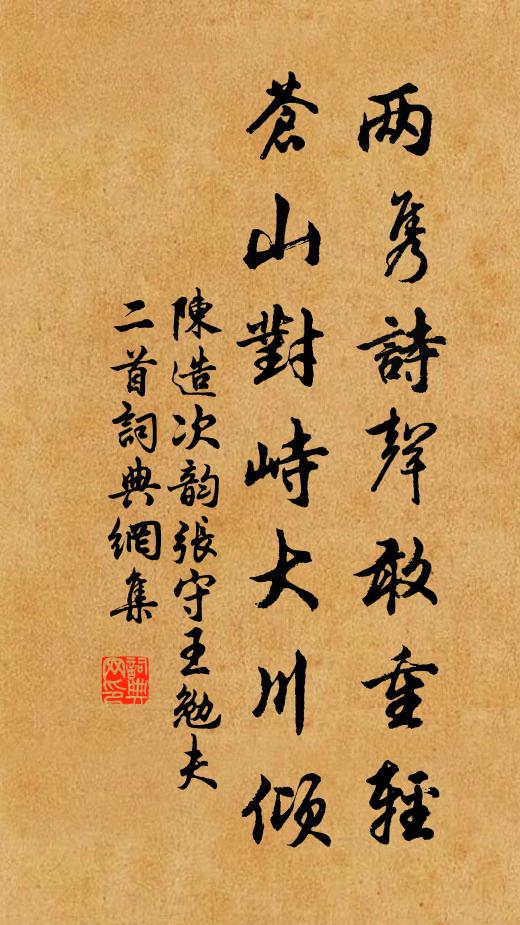 两隽詩聲敢重輕
蒼山對峙大川傾
陳造次韵張守王勉夫
二首詞典網集
詞典網印